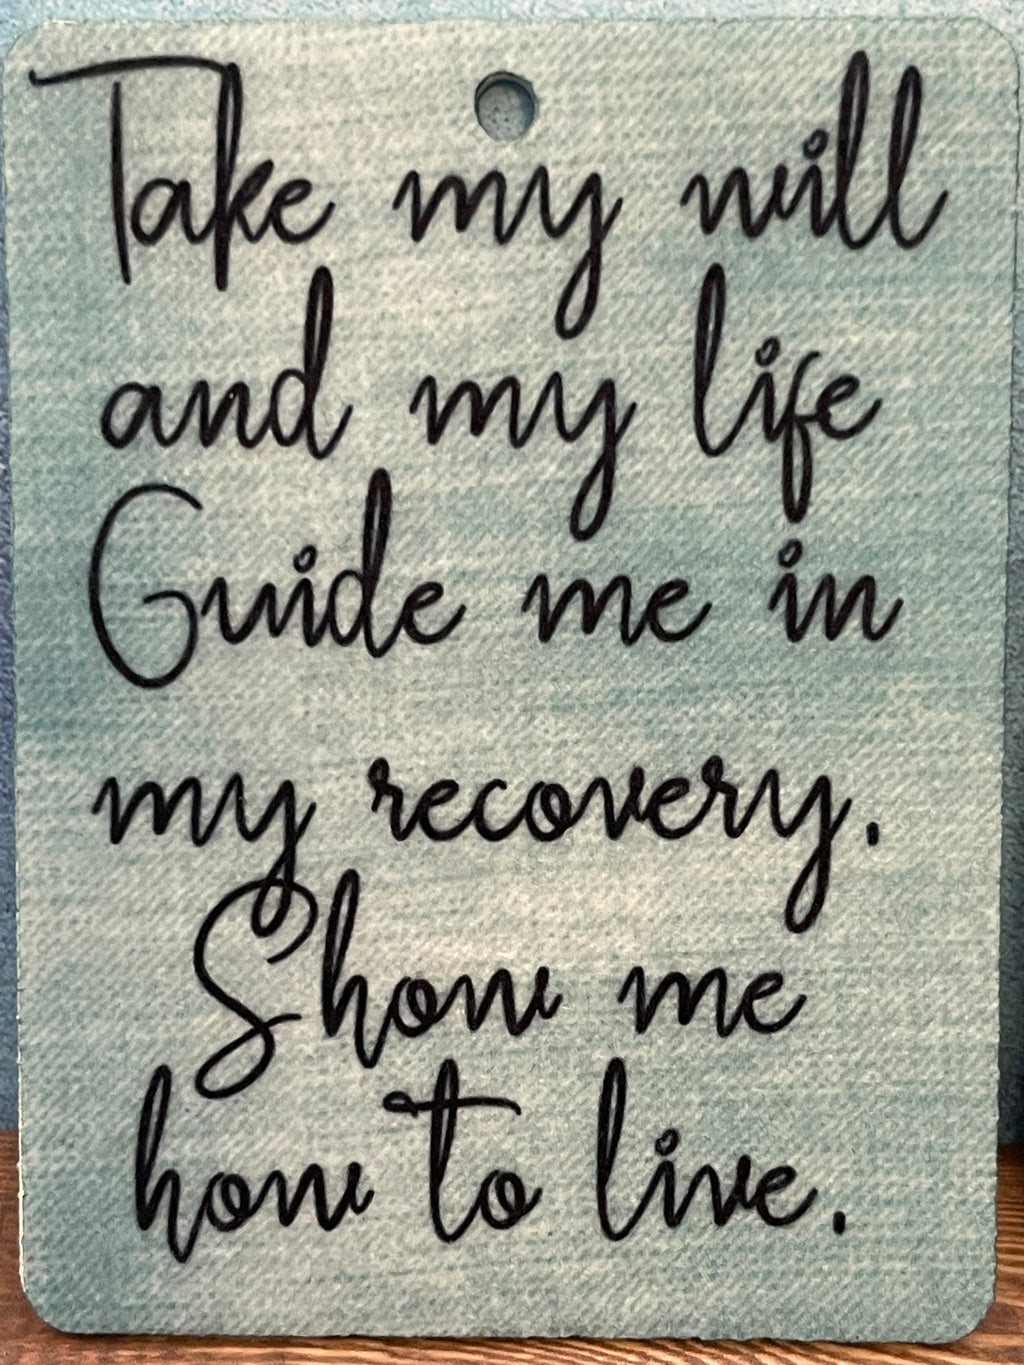 Take my will
and my life
Guide me in
my recovery.
Show me
how to live.